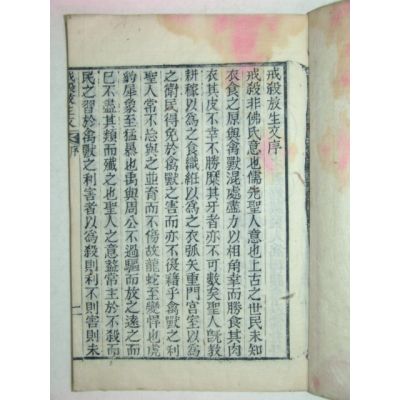 戒殺放生文序
戒殺非佛氏意也儒先聖人意也上古之世民未知
衣食之原與禽獸混處盡力以相角幸而勝食其肉
衣其皮不幸不勝糜其牙者亦不可數矣聖人旣教
耕稼以為之食織紝以為之衣弧矢重門宮室以為
之衛民得免於禽獸之害而亦不復藉乎禽獸之利
聖人常不忍與之並育而不傷故龍蛇至變悍也虎
豹犀象至猛暴也禹與周公不過驅而放之遠之而
已不盡其類而殲之也聖人之意蓋常主於不殺而
民之習於禽獸之利害者以為殺則利不則害則未
戒殺放生文 序 一